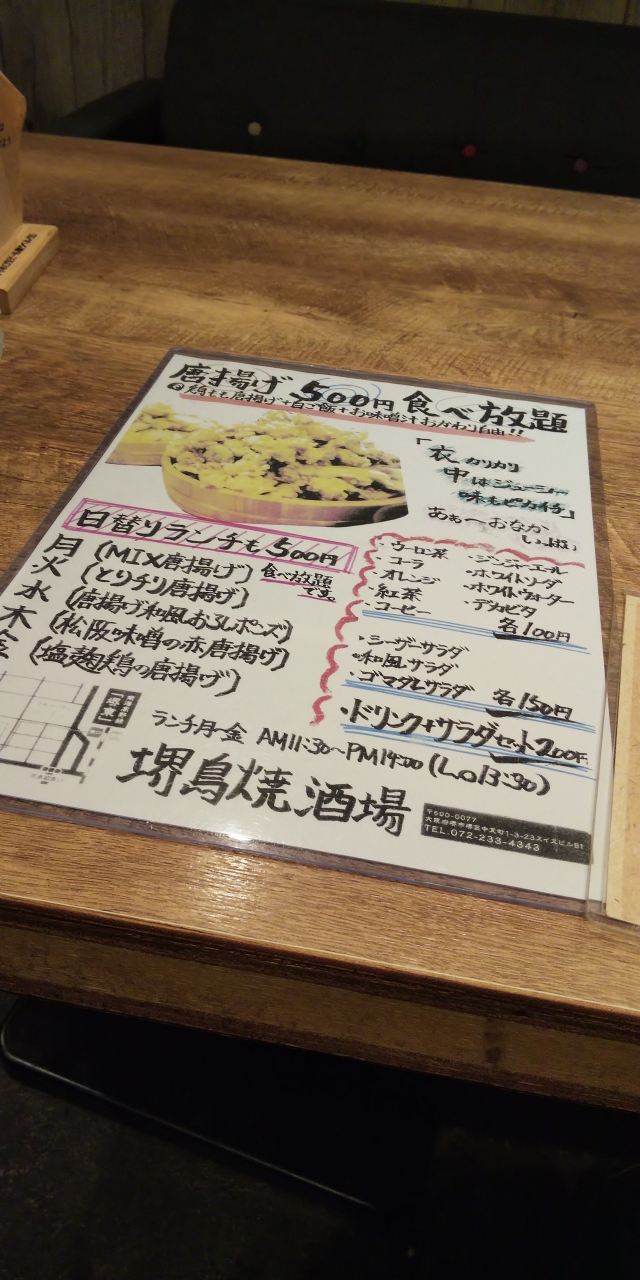 唐揚げ 500円 食べ放題
鶏もも唐揚げ+白ご飯+お味噌汁おかわり自由!!
「衣カリカリ
中はジューシー
味もピカイチ」
あぁ〜おなか
いっぱい
日替りランチも500円
食べ放題
です。
月 (MIX唐揚げ)
火 (とりチリ唐揚げ)
水 (唐揚げ和風おろしポンズ)
木 (松阪味噌の赤唐揚げ)
金 (塩麹鶏の唐揚げ)
・ウーロン茶
・コーラ
・オレンジ
・紅茶
・コーヒー
・ジンジャーエール
・ホワイトソーダ
・ホワイトウォーター
・デカビタ
各100円
・シーザーサラダ
・和風サラダ
・ゴマダレサラダ 各150円
・ドリンク+サラダセット200円
ランチ月〜金 AM11:30〜PM14:00 (L.o13:30)
堺鳥焼酒場
〒590-0077
大阪府堺市堺区中瓦町1-3-23スイスビルB1
TEL.072-233-4343